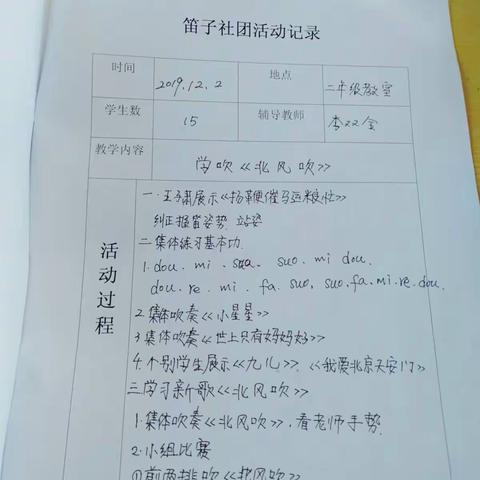 笛子社团活动记录
时间 2019.12.2 地点 二年级教室
学生数 15 辅导教师 李双全
教学内容 学吹《北风吹》
活动过程
一.王子肃展示《扬鞭催马运粮忙》
纠正握笛姿势.站姿
二.集体练习基本功.
1.dou. mi. sua. suo. mi dou.
dou.re.mi.fa.suo, suo.fa.mi.re.dou.
2.集体吹奏《小星星》
3.集体吹奏《世上只有妈妈好》
4.个别学生展示《九儿》.《我爱北京天安门》
三.学习新歌《北风吹》
1.集体吹奏《北风吹》,看老师手势.
2.小组比赛
①前两排吹《北风吹》